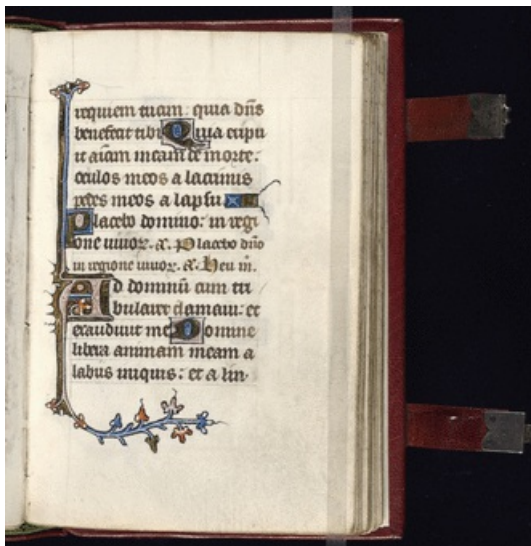 requiem tuam: quia dns
benefecit tibi Quia eripu
it aiam meam de morte:
oculos meos a lacrimis
pedes meos a lapsu
Placebo domino: in regi
one uiuor. &. Placebo dno
in regione uiuor. &. Heu m.
Ad dominū cum tri
bularer clamaui: et
exaudiuit me Domine
libera animam meam a
labiis iniquis: et a lin-